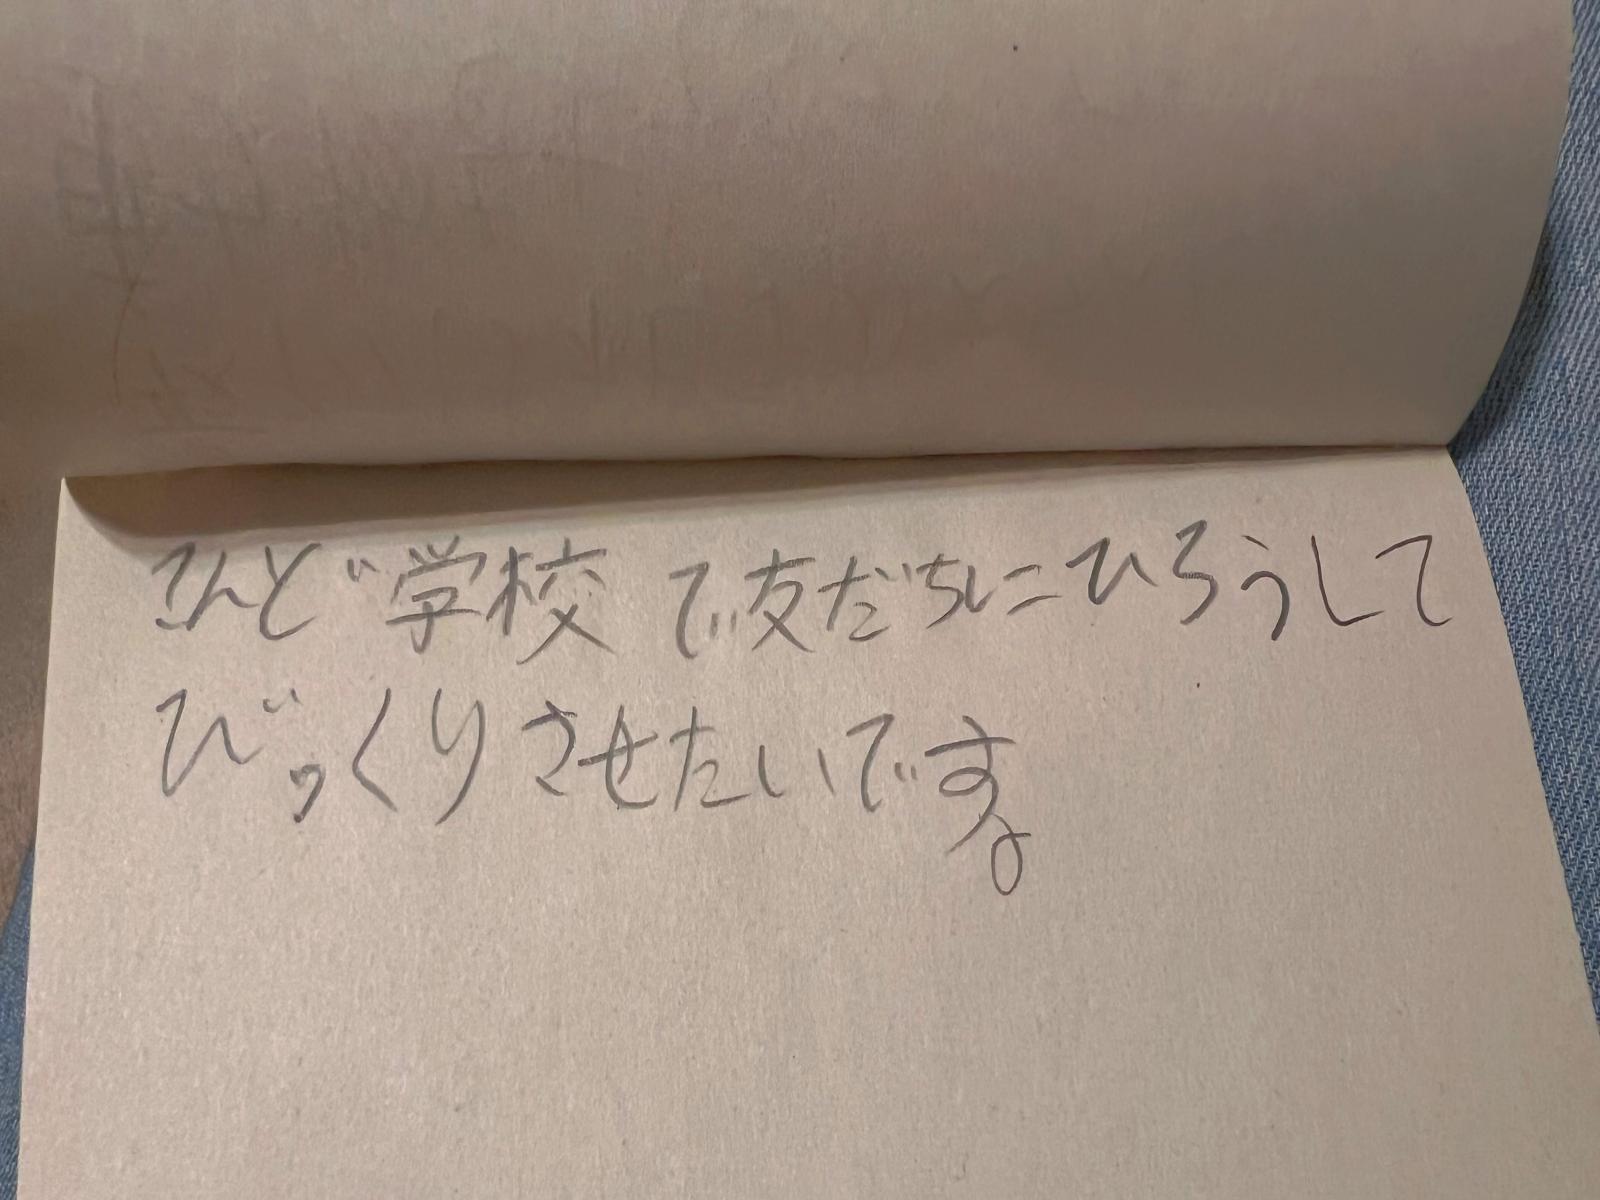 こんど学校で友だちにひろうして
びっくりさせたいです。